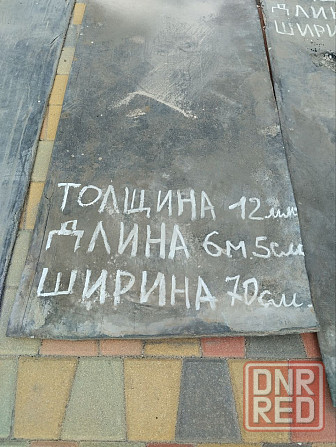 ДЛИНА
ШИРИН
ТОЛЩИНА 12мм
ДЛИНА 6м 5см
ШИРИНА 70см.
DNR
RED